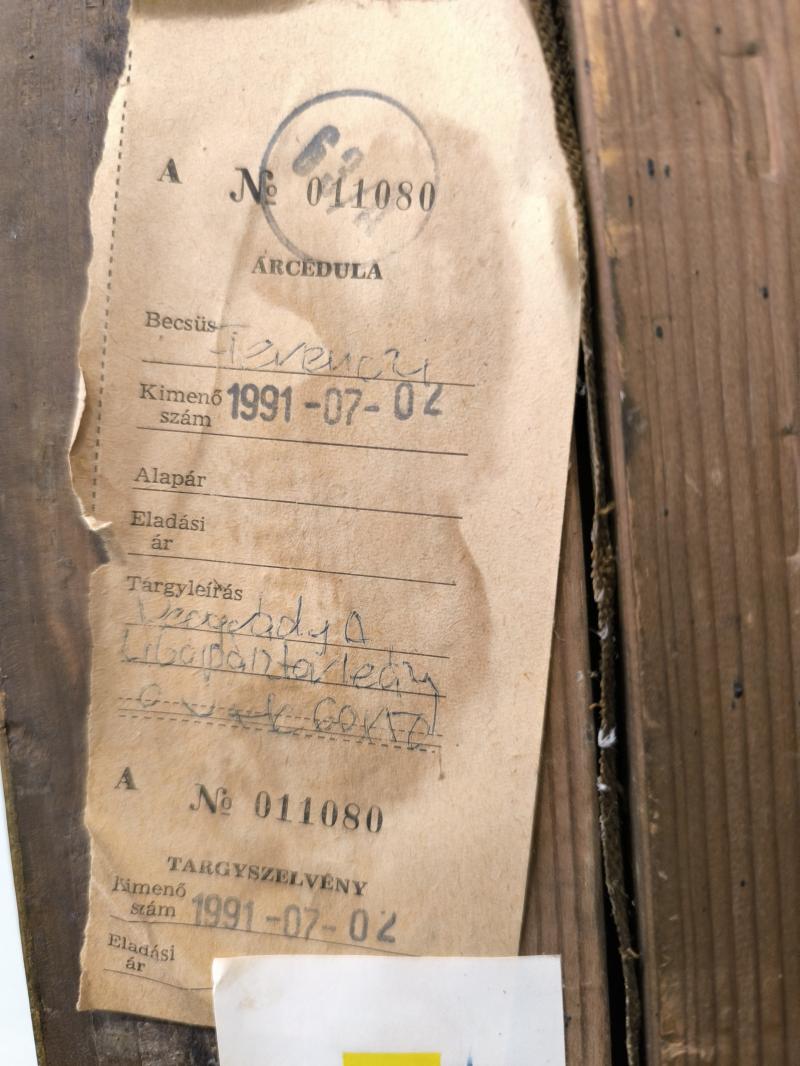 A № 011080
ÁRCÉDULA
Becsüs Ferenczi
Kimenő
szám 1991-07-02
Alapár
Eladási
ár
Tárgyleírás
A
Libapásztorleány
60x72
A № 011080
TÁRGYSZELVÉNY
Kimenő
szám 1991-07-02
Eladási
ár